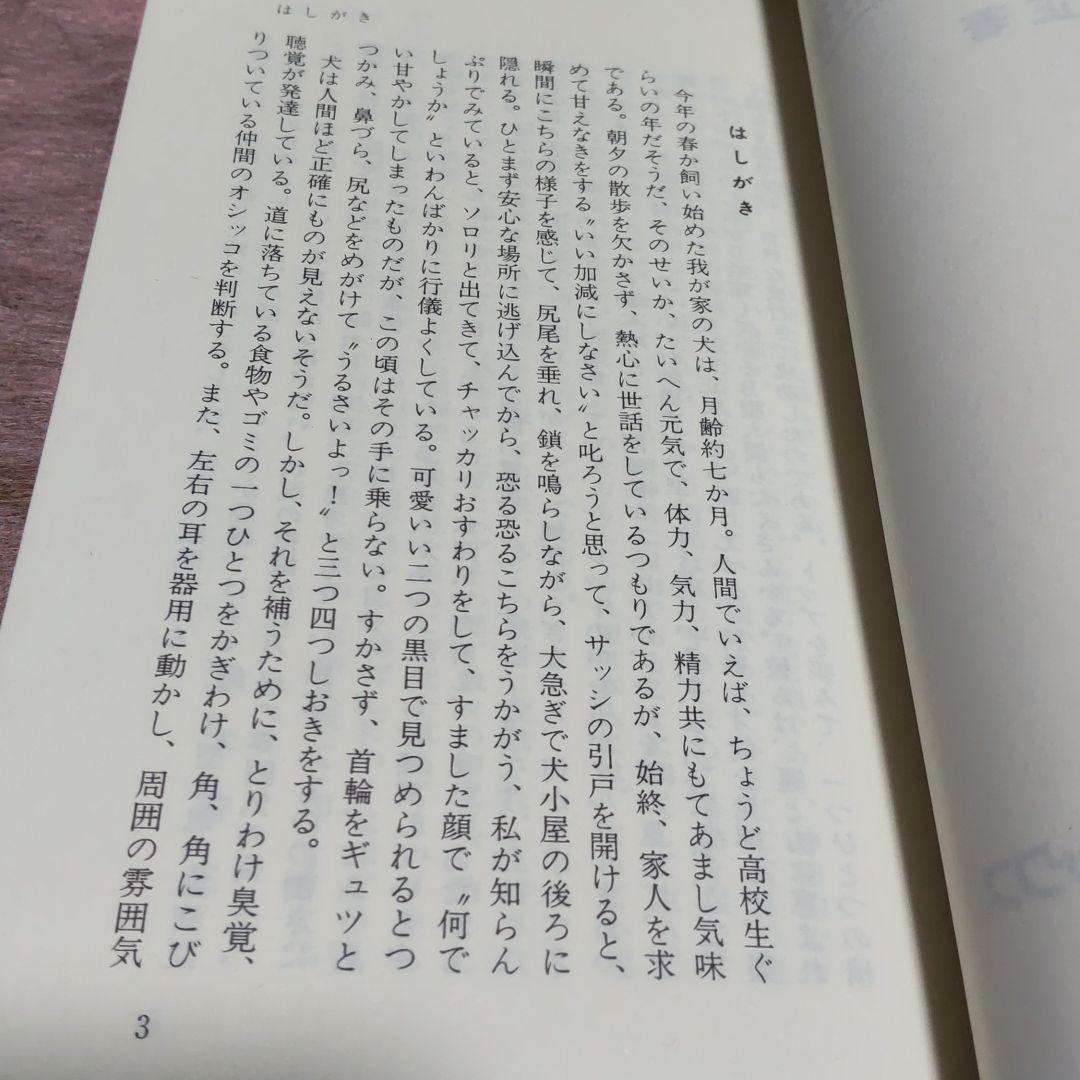 はしがき
はしがき
今年の春か飼い始めた我が家の犬は、月齢約七か月。人間でいえば、ちょうど高校生ぐ
らいの年だそうだ、そのせいか、たいへん元気で、体力、気力、精力共にもてあまし気味
である。朝夕の散歩を欠かさず、熱心に世話をしているつもりであるが、始終、家人を求
めて甘えなきをする〝いい加減にしなさい〟と叱ろうと思って、サッシの引戸を開けると、
瞬間にこちらの様子を感じて、尻尾を垂れ、鎖を鳴らしながら、大急ぎで犬小屋の後ろに
隠れる。ひとまず安心な場所に逃げ込んでから、恐る恐るこちらをうかがう、私が知らん
ぷりでみていると、ソロリと出てきて、チャッカリおすわりをして、すました顔で〝何で
しょうか〟といわんばかりに行儀よくしている。可愛いい二つの黒目で見つめられるとつ
い甘やかしてしまったものだが、この頃はその手に乗らない。すかさず、首輪をギュッと
つかみ、鼻づら、尻などをめがけて〝うるさいよっ！〟と三つ四つしおきをする。
犬は人間ほど正確にものが見えないそうだ。しかし、それを補うために、とりわけ臭覚、
聴覚が発達している。道に落ちている食物やゴミの一つひとつをかぎわけ、角、角にこび
りついている仲間のオシッコを判断する。また、左右の耳を器用に動かし、周囲の雰囲気
3